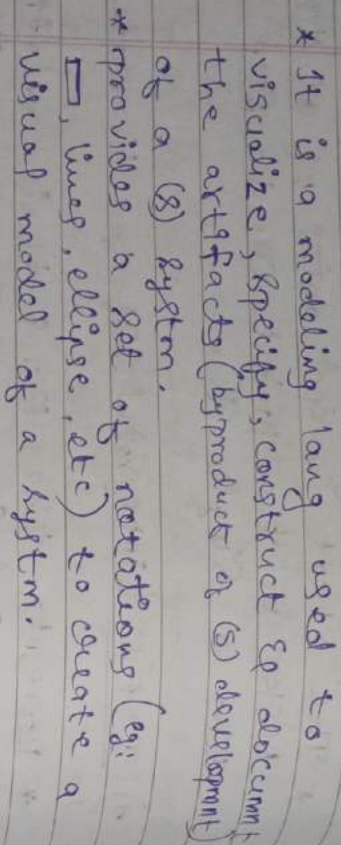 * It is a modeling lang used to
visualize, specify, construct & documnt
the artifacts (byproduct of (S) developmnt)
of a (S) systm.
* provides a set of notations (eg:
▭, lines, ellipse, etc) to create a
visual model of a systm.